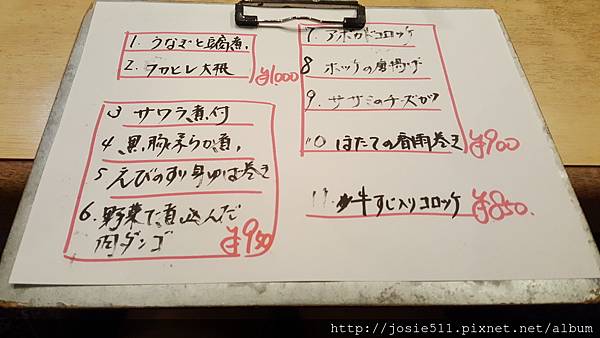 1. うなぎと豆腐煮.
2. フカヒレ大根
¥1000
3 サワラ煮付
4 黒胸柔らか煮,
5 えびのすり身ゆば巻き
6. 野菜で煮込んだ
肉ダンゴ
¥950
7 アボカドコロッケ
8 ホッケの唐揚げ
9. ササミのチーズカツ
10 ほたての春雨巻き
¥900
11 牛すじ入りコロッケ
¥850.
http://josie511.pixnet.net/album